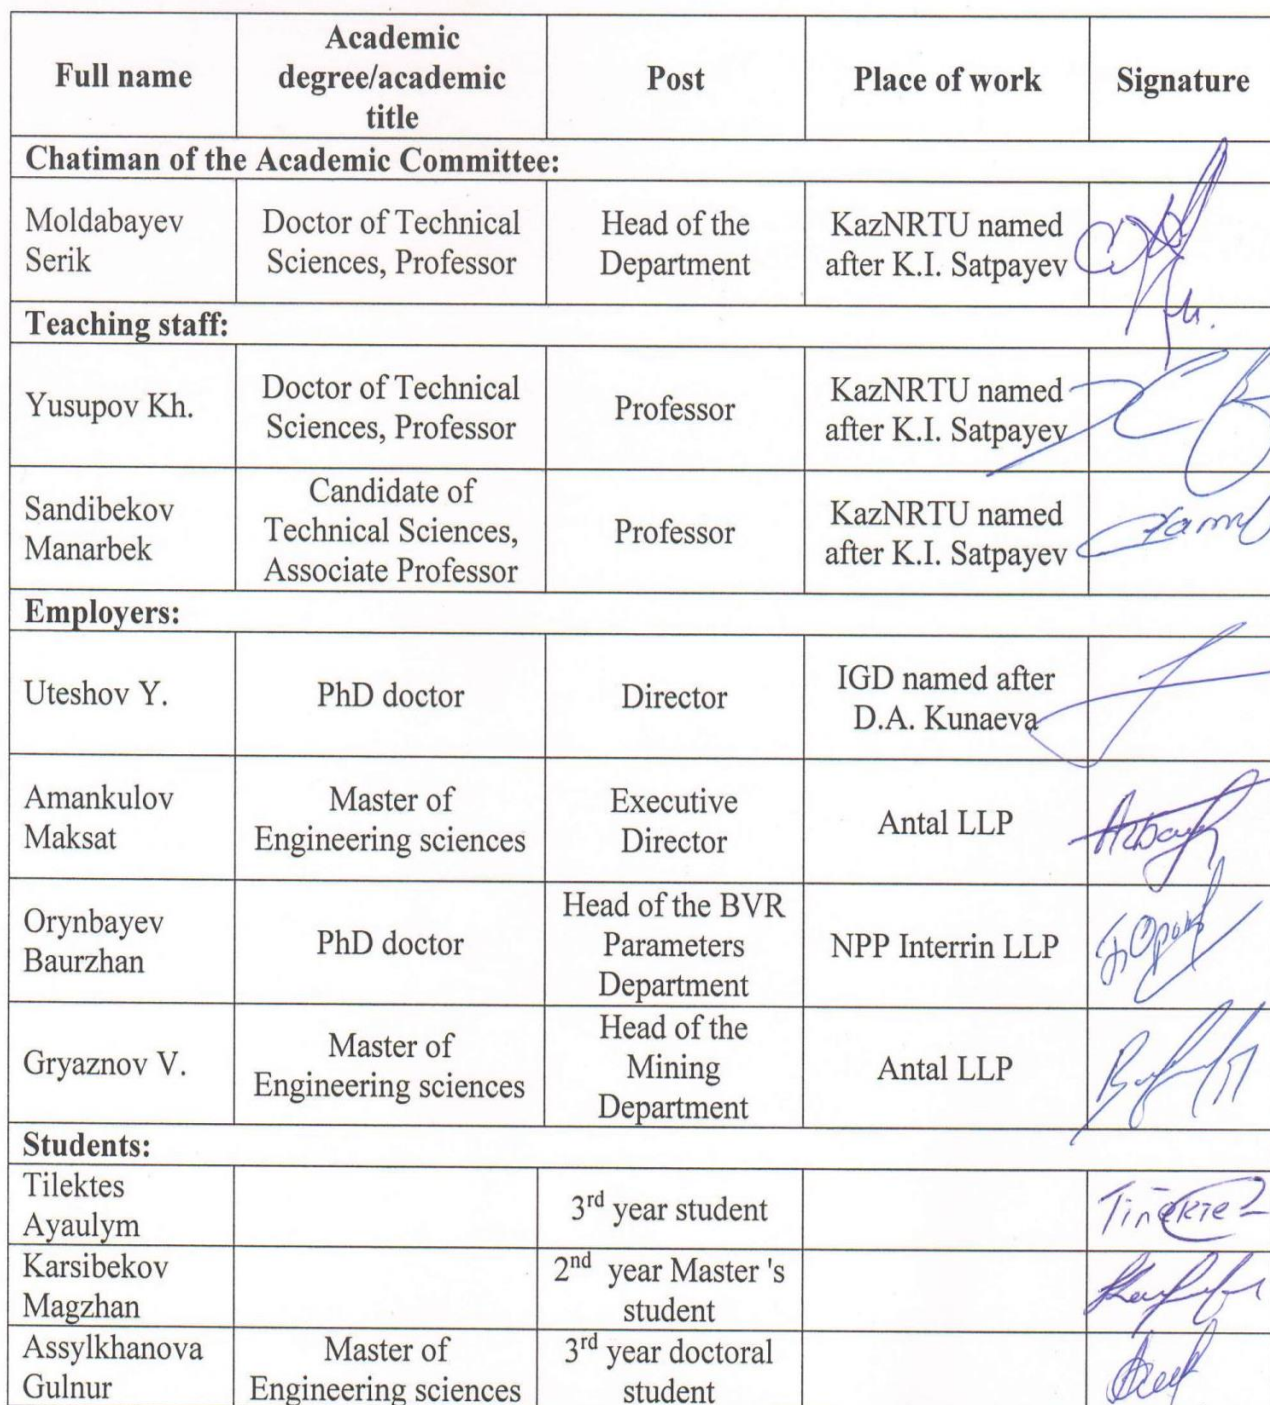 Full name
Academic
degree/academic
title
Post
Place of work
Signature
Chatiman of the Academic Committee:
Moldabayev
Serik
Doctor of Technical
Sciences, Professor
Head of the
Department
KazNRTU named
after K.I. Satpayev
Teaching staff:
Yusupov Kh.
Doctor of Technical
Sciences, Professor
Professor
KazNRTU named
after K.I. Satpayev
Sandibekov
Manarbek
Candidate of
Technical Sciences,
Associate Professor
Professor
KazNRTU named
after K.I. Satpayev
Employers:
Uteshov Y.
PhD doctor
Director
IGD named after
D.A. Kunaeva
Amankulov
Maksat
Master of
Engineering sciences
Executive
Director
Antal LLP
Orynbayev
Baurzhan
PhD doctor
Head of the BVR
Parameters
Department
NPP Interrin LLP
Gryaznov V.
Master of
Engineering sciences
Head of the
Mining
Department
Antal LLP
Students:
Tilektes
Ayaulym
3rd year student
Karsibekov
Magzhan
2nd year Master 's
student
Assylkhanova
Gulnur
Master of
Engineering sciences
3rd year doctoral
student